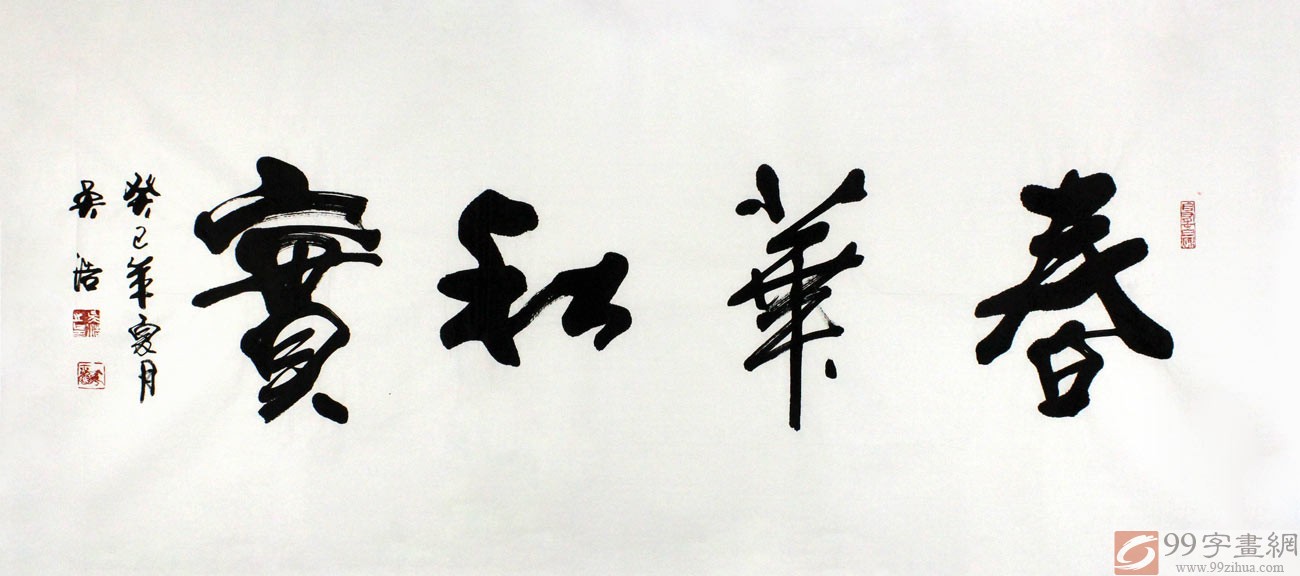 春華秋實
癸巳年夏月
吴浩
99字畫網
www.99zihua.com